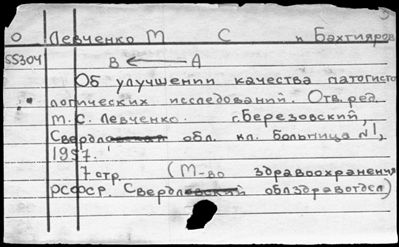 О Левченко М С и Бахтияров
55304 В ← А
Об улучшении качества патогисто
логических исследований. Отв. ред.
М.С. Левченко. г. Березовский,
Свердловская обл. кл. больница №1,
1957.
7 стр. (М-во здравоохранения
РСФСР. Свердловский облздравотдел)